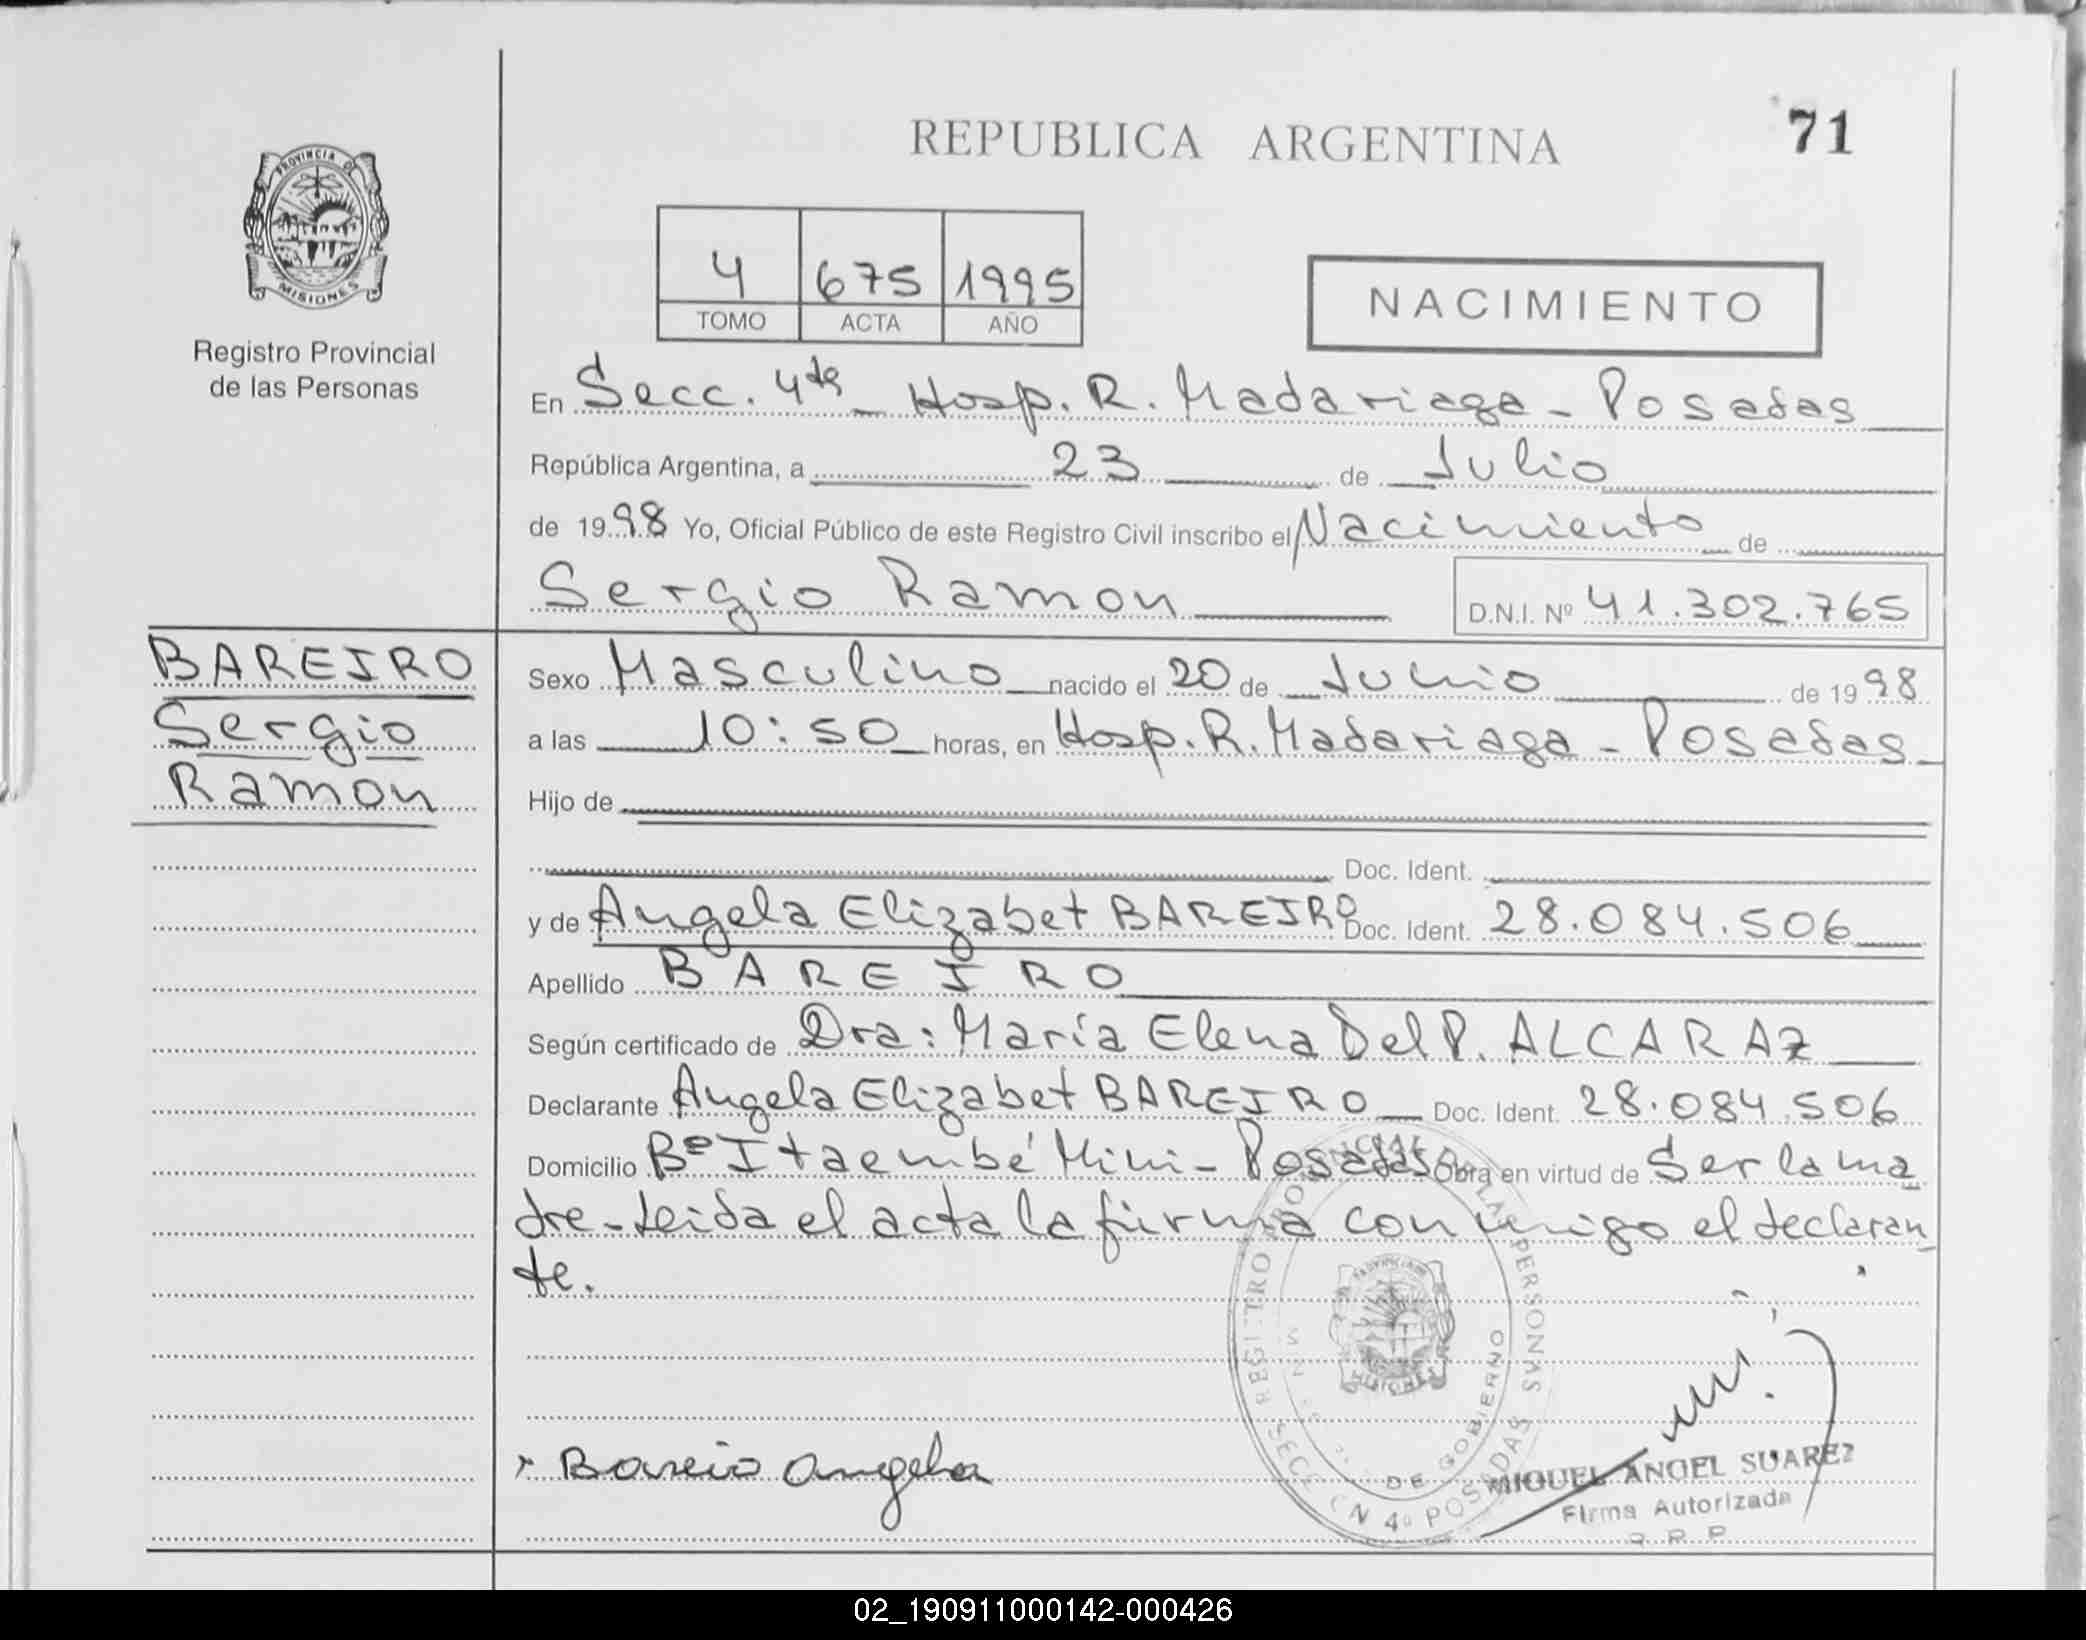 REPUBLICA ARGENTINA
71
PROVINCIA DE
MISIONES
Registro Provincial
de las Personas
4 675 1995
TOMO ACTA AÑO
NACIMIENTO
En Secc. 4ta - Hosp. R. Madariaga - Posadas
República Argentina, a 23 de Julio
de 1998 Yo, Oficial Público de este Registro Civil inscribo el Nacimiento de
Sergio Ramon D.N.I. Nº 41.302.765
BAREIRO
Sergio
Ramon
Sexo Masculino nacido el 20 de Junio de 1998
a las 10:50 horas, en Hosp. R. Madariaga - Posadas
Hijo de
Doc. Ident.
y de Angela Elizabet BAREIRO Doc. Ident. 28.084.506
Apellido BAREIRO
Según certificado de Dra: María Elena Del P. ALCARAZ
Declarante Angela Elizabet BAREIRO Doc. Ident. 28.084.506
Domicilio Bº Itaembé Mini - Posadas Obra en virtud de Ser la ma
dre - Leida el acta la firma con migo el declaran
te.
Bareio Angela
MIGUEL ANGEL SUAREZ
Firma Autorizada
R. P. P.
DE GOBIERNO
02_190911000142-000426